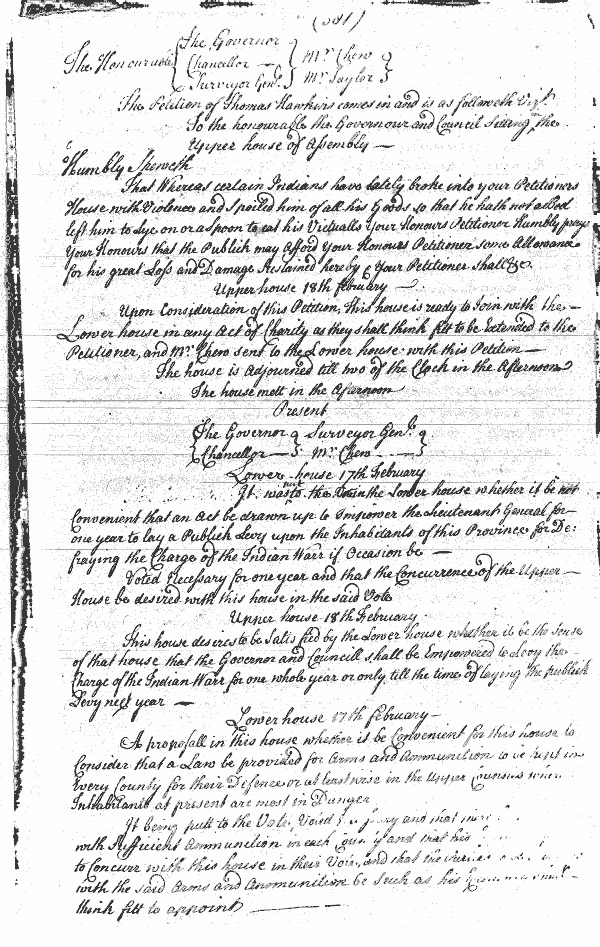 (381)
The Honourable { The Governor } { Mr. Chew }
{ Chancellor — } { Mr. Taylor }
{ Surveyor Genl. }
The Petition of Thomas Hawkins comes in and is as followeth Vizt.
To the honourable the Governour and Council Sitting in the
Upper house of Assembly —
Humbly Sheweth
That Whereas certain Indians have lately broke into your Petitioners
House with Violence and Spoiled him of all his Goods so that he hath not a Bed
left him to Lye on or a Spoon to eat his Victualls Your Honours Petitioner Humbly prays
Your Honours that the Publick may Afford Your Honours Petitioner some Allowance
for his great Loss and Damage Sustained hereby & Your Petitioner Shall &c
Upper house 18th February —
Upon Consideration of this Petition, This house is ready to Join with the —
Lower house in any Act of Charity as they shall think fitt to be Extended to the
Petitioner, and Mr. Chew sent to the Lower house with this Petition —
The house is Adjourned till two of the Clock in the Afternoon
The house mett in the Afternoon
Present
{ The Governor } Surveyor Genl. }
{ Chancellor — } Mr. Chew — }
Lower house 17th February
It was put to the Vote in the Lower house whether it be not
Convenient that an Act be drawn up to Impower the Lieutenant General for —
one year to lay a Publick Levy upon the Inhabitants of this Province for De:
fraying the Charge of the Indian Warr if Occasion be —
Voted Necessary for one year and that the Concurrence of the Upper —
House be desired with this house in the said Vote
Upper house 18th February
This house desires to be Satisfied by the Lower house whether it be the Sense
of that house that the Governor and Councill shall be Empowered to Levy the
Charge of the Indian Warr for one whole year or only till the time of laying the publick
Levy next year —
Lower house 17th February —
A proposall in this house whether it be Convenient for this house to
Consider that a Law be provided for Arms and Ammunition to be kept in
Every County for their Defence or at least wise in the Upper Counties where
Inhabitants at present are most in Danger
It being putt to the Vote, Voted and that
with Sufficient Ammunition in each County and that his
to Concurr with this house in their Vote, and that the
with the said Arms and Ammunition be Such as his
think fitt to appoint —